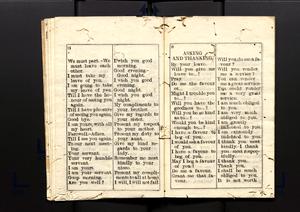 We must part.-We
must leave each
other.
I must take my
leave of you.
I am going to take
my leave of you.
Till I have the ho-
nour of seeing you
again.
Till I have pleasure
of seeing you again.
Good bye.
I am yours, with all
my heart.
Farewell-Adieu.
Till I see you again.
To our next meet-
ing.
Your servant.
Your very humble
servant.
I am yours.
I am your servant.
Good morning.
Are you well?
I wish you good
morning.
Good evening.
Good night.
I wish you good
evening.
I wish you good
night.
My compliments to
your brother.
Give my regards to
your sister.
Present my respects
to your mother.
Present my duty to
your aunt.
Give my kind re-
gards to your
lady.
Remember me most
kindly to your
Present my compli-
ments to all at home
I will, I will not fail
ASKING
AND THANKING
By your leave.
Will you give me
leave to..?
Pray.
Do me the favour
of..
Might I trouble you
to..?
Will you have the
goodness to..?
Will you be so kind
as to..?
Would you be kind
enough to..?
I have a favour to
beg of you.
I would ask a favour
of you.
I have a favour to
beg of you.
May I beg a favour
of you?
Do me a favour.
Grant me that fa-
vour.
Will you do me a fa-
vour?
Will you render
me a service?
You can render
me a great service.
You could render
me a very great
service.
I am much obliged
to you.
I am very much
obliged to you.
I am greatly
to you.
I am extremely
obliged to you.
I thank you most
kindly.
I thank you sin-
cerely.
Thank you.
I shall be much
obliged to you.
It is not worth